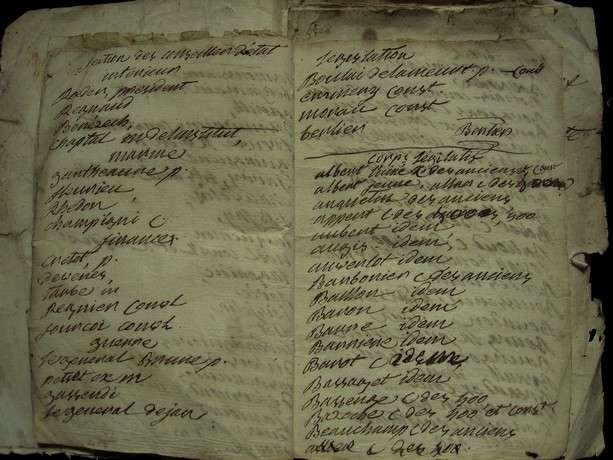 Section des conseillers d'etat
interieur
Roder, president
Regnaud
Bénézech,
chaptal m de linstitut,
marine
gantheaume p.
fleurieu
Redon
champagni C
finances
cretet p.
defenes
Regnien const
fourcoi const.
guerre
le general Brune p.
petiet ex m
lassendi
le general dejan
Legislation
Boulai delameurt p. cons
const
moreau const
berlier Berlier
corps législatif
albert l'aine c des anciens const
albert jeune, c des
anquetin des anciens
appert c des 500
aubert idem
auger idem
auverlot idem
Barbonien c des anciens
Baillon idem
Baron idem
Barré idem
Barriere idem
Barrot c idem
Bassaget idem
Bassenge c des 500
Bazoche c des 500 et const
Beauchamp c des anciens
c des 500